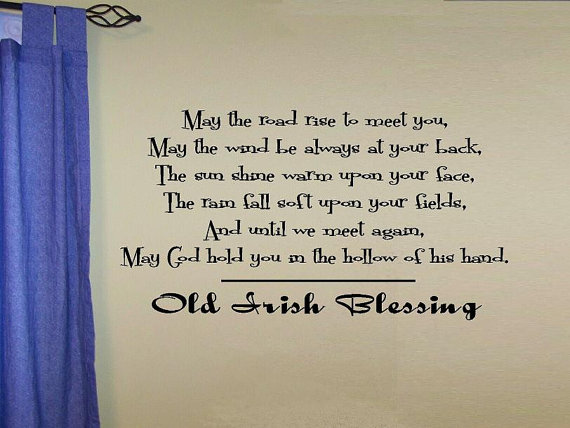 May the road rise to meet you,
May the wind be always at your back,
The sun shine warm upon your face,
The rain fall soft upon your fields,
And until we meet again,
May God hold you in the hollow of his hand.
Old Irish Blessing